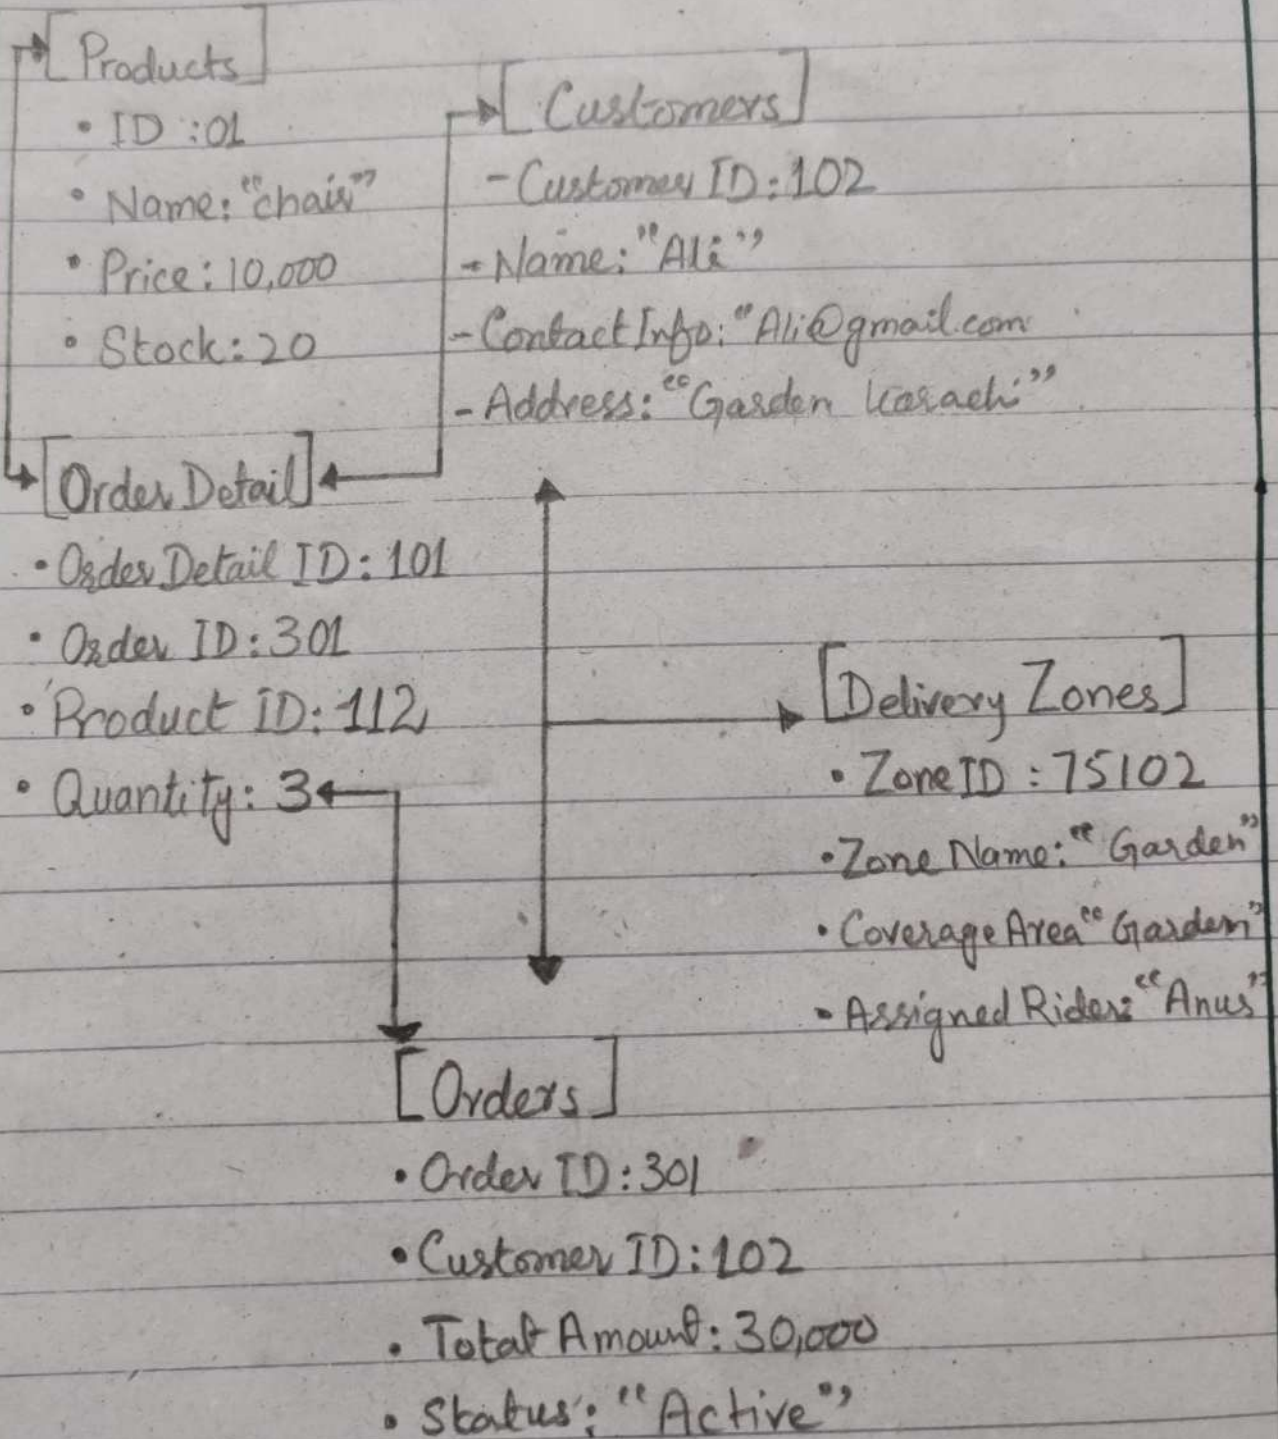 [Products]
• ID :01
• Name: "chair"
• Price: 10,000
• Stock: 20
[Customers]
- Customer ID: 102
- Name: "Ali"
- Contact Info: "Ali@gmail.com
- Address: "Garden Karachi"
[Order Detail]
• Order Detail ID: 101
• Order ID: 301
• Product ID: 112
• Quantity: 3
[Delivery Zones]
• Zone ID : 75102
• Zone Name: "Garden"
• Coverage Area "Garden"
• Assigned Rider: "Anus"
[Orders]
• Order ID: 301
• Customer ID: 102
• Total Amount: 30,000
• Status: "Active"